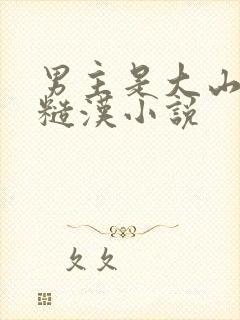 男主是大山
糙漢小說
久久